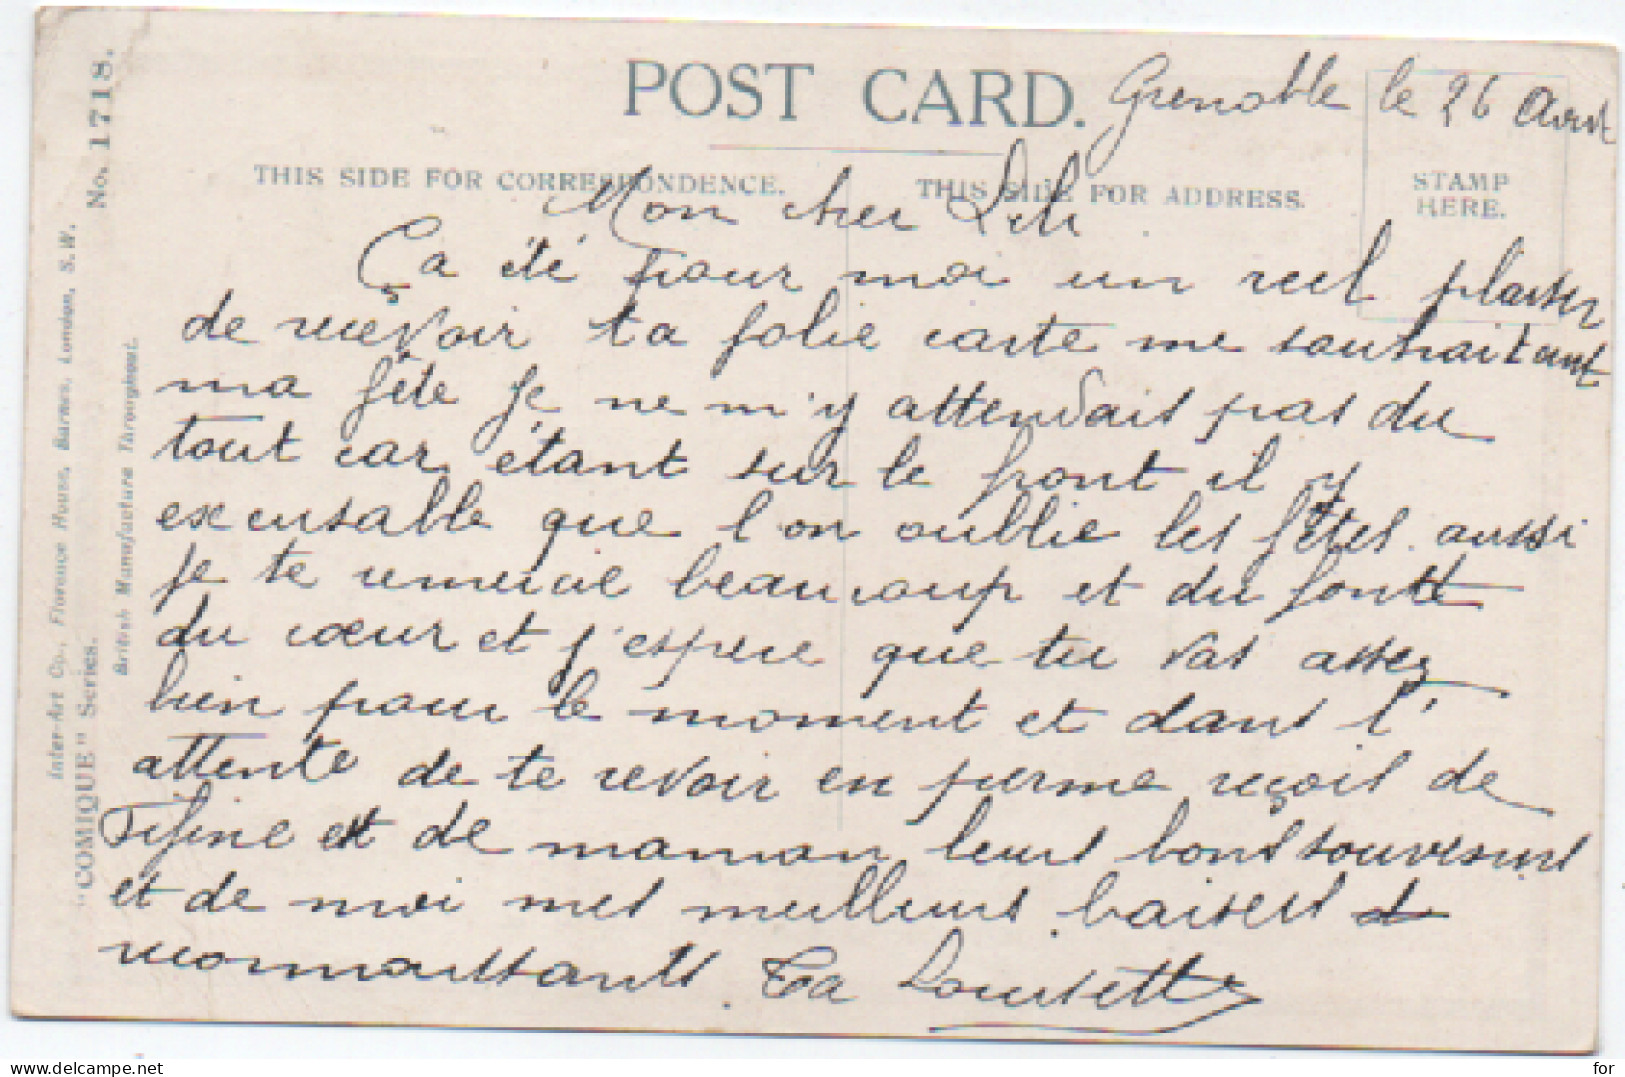 POST CARD.
Grenoble le 26 Avril
THIS SIDE FOR CORRESPONDENCE.
THIS SIDE FOR ADDRESS.
STAMP
HERE.
Mon cher Lili
Ça été pour moi un reel plaisir
de reçevoir ta jolie carte me souhaitant
ma fête je ne m'y attendais pas du
tout car étant sur le front il y
excusable que l'on oublie les fêtes aussi
je te remercie beaucoup et du fond
du cœur et j'espere que tu vas assez
bien pour le moment et dans l'
attente de te revoir en perme reçois de
Fifine et de maman leurs bons souvenirs
et de moi mes meilleurs baisers
reconnaissants. Ta Lousette
No. 1718.
Inter-Art Co., Florence House, Barnes, London, S.W.
"COMIQUE" Series.
British Manufacture Throughout.
www.delcampe.net
for